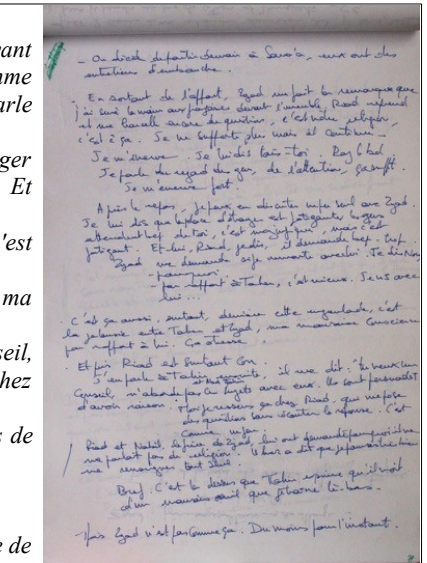 vant
mme
arle
ger
Et
'est
ma
seil,
hez
s de
e de
- On décide de partir demain à Sana'a, eux ont des
entretiens d'embauche.
- En sortant de l'appart, Zyad me fait la remarque que
j'ai serré la main aux devant l'immeuble, Riad reprend
et me harcelle encore de question, c'est notre religion,
c'est ça. Je ne supporte plus mais il continue -
Je m'énerve. Je lui dis tais-toi.
Je parle du regard des gens, de l'attention, ça suffit.
Je m'énerve fort.
Après le repas, je peux en discuter seul avec Zyad.
Je lui dis que la place d'étranger est fatigante, les gens
attendent de toi, c'est mais c'est
fatigant. Et lui, Riad, je dis, il demande
Zyad me demande si je remonte avec lui. Je dis Non
- pourquoi
- par rapport à Taher, c'est mieux. Je vis avec
lui...
- C'est ça aussi, surtout, derrière cette engueulade, c'est
la jalousie entre Taher et Zyad, ma mauvaise conscience
par rapport à lui. Ça stresse.
- Et puis Riad est surtout con.
J'en parle à Taher ensuite, il me dit: tu veux un
conseil, n'aborde pas ces sujets avec eux. Ils sont persuadés
d'avoir raison. Moi je ressens ça chez Riad, qui me pose
des questions sans écouter la réponse. C'est
comme
Riad et Nabil, le frère de Zyad, lui ont demandé pourquoi il ne
me parlait pas de religion. Il leur a dit que je pouvais très bien
me renseigner tout seul.
Bref. C'est là dessus que Taher estime qu'il voit
d'un mauvais œil que là-bas.
- Mais Zyad n'est pas comme ça. Du moins pour l'instant.